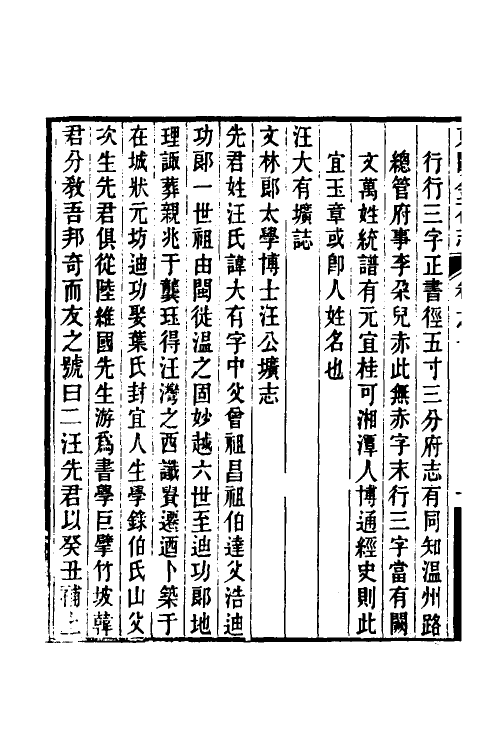 行行三字正書徑五寸三分府志有同知温州路
總管府事李朵兒赤此無赤字末行三字當有闕
文萬姓統譜有元宜桂可湘潭人博通經史則此
宜玉章或卽人姓名也
汪大有壙誌
文林郞太學博士汪公壙志
先君姓汪氏諱大有字中父曾祖昌祖伯達父浩迪
功郞一世祖由閩徙温之固妙越六世至迪功郞地
理諏葬親兆于龔珏得汪灣之西讖賁遷迺卜築于
在城狀元坊迪功娶葉氏封宜人生學錄伯氏山父
次生先君俱從陸維國先生游爲書學巨擘竹坡韓
君分敎吾邦奇而友之號曰二汪先君以癸丑補上